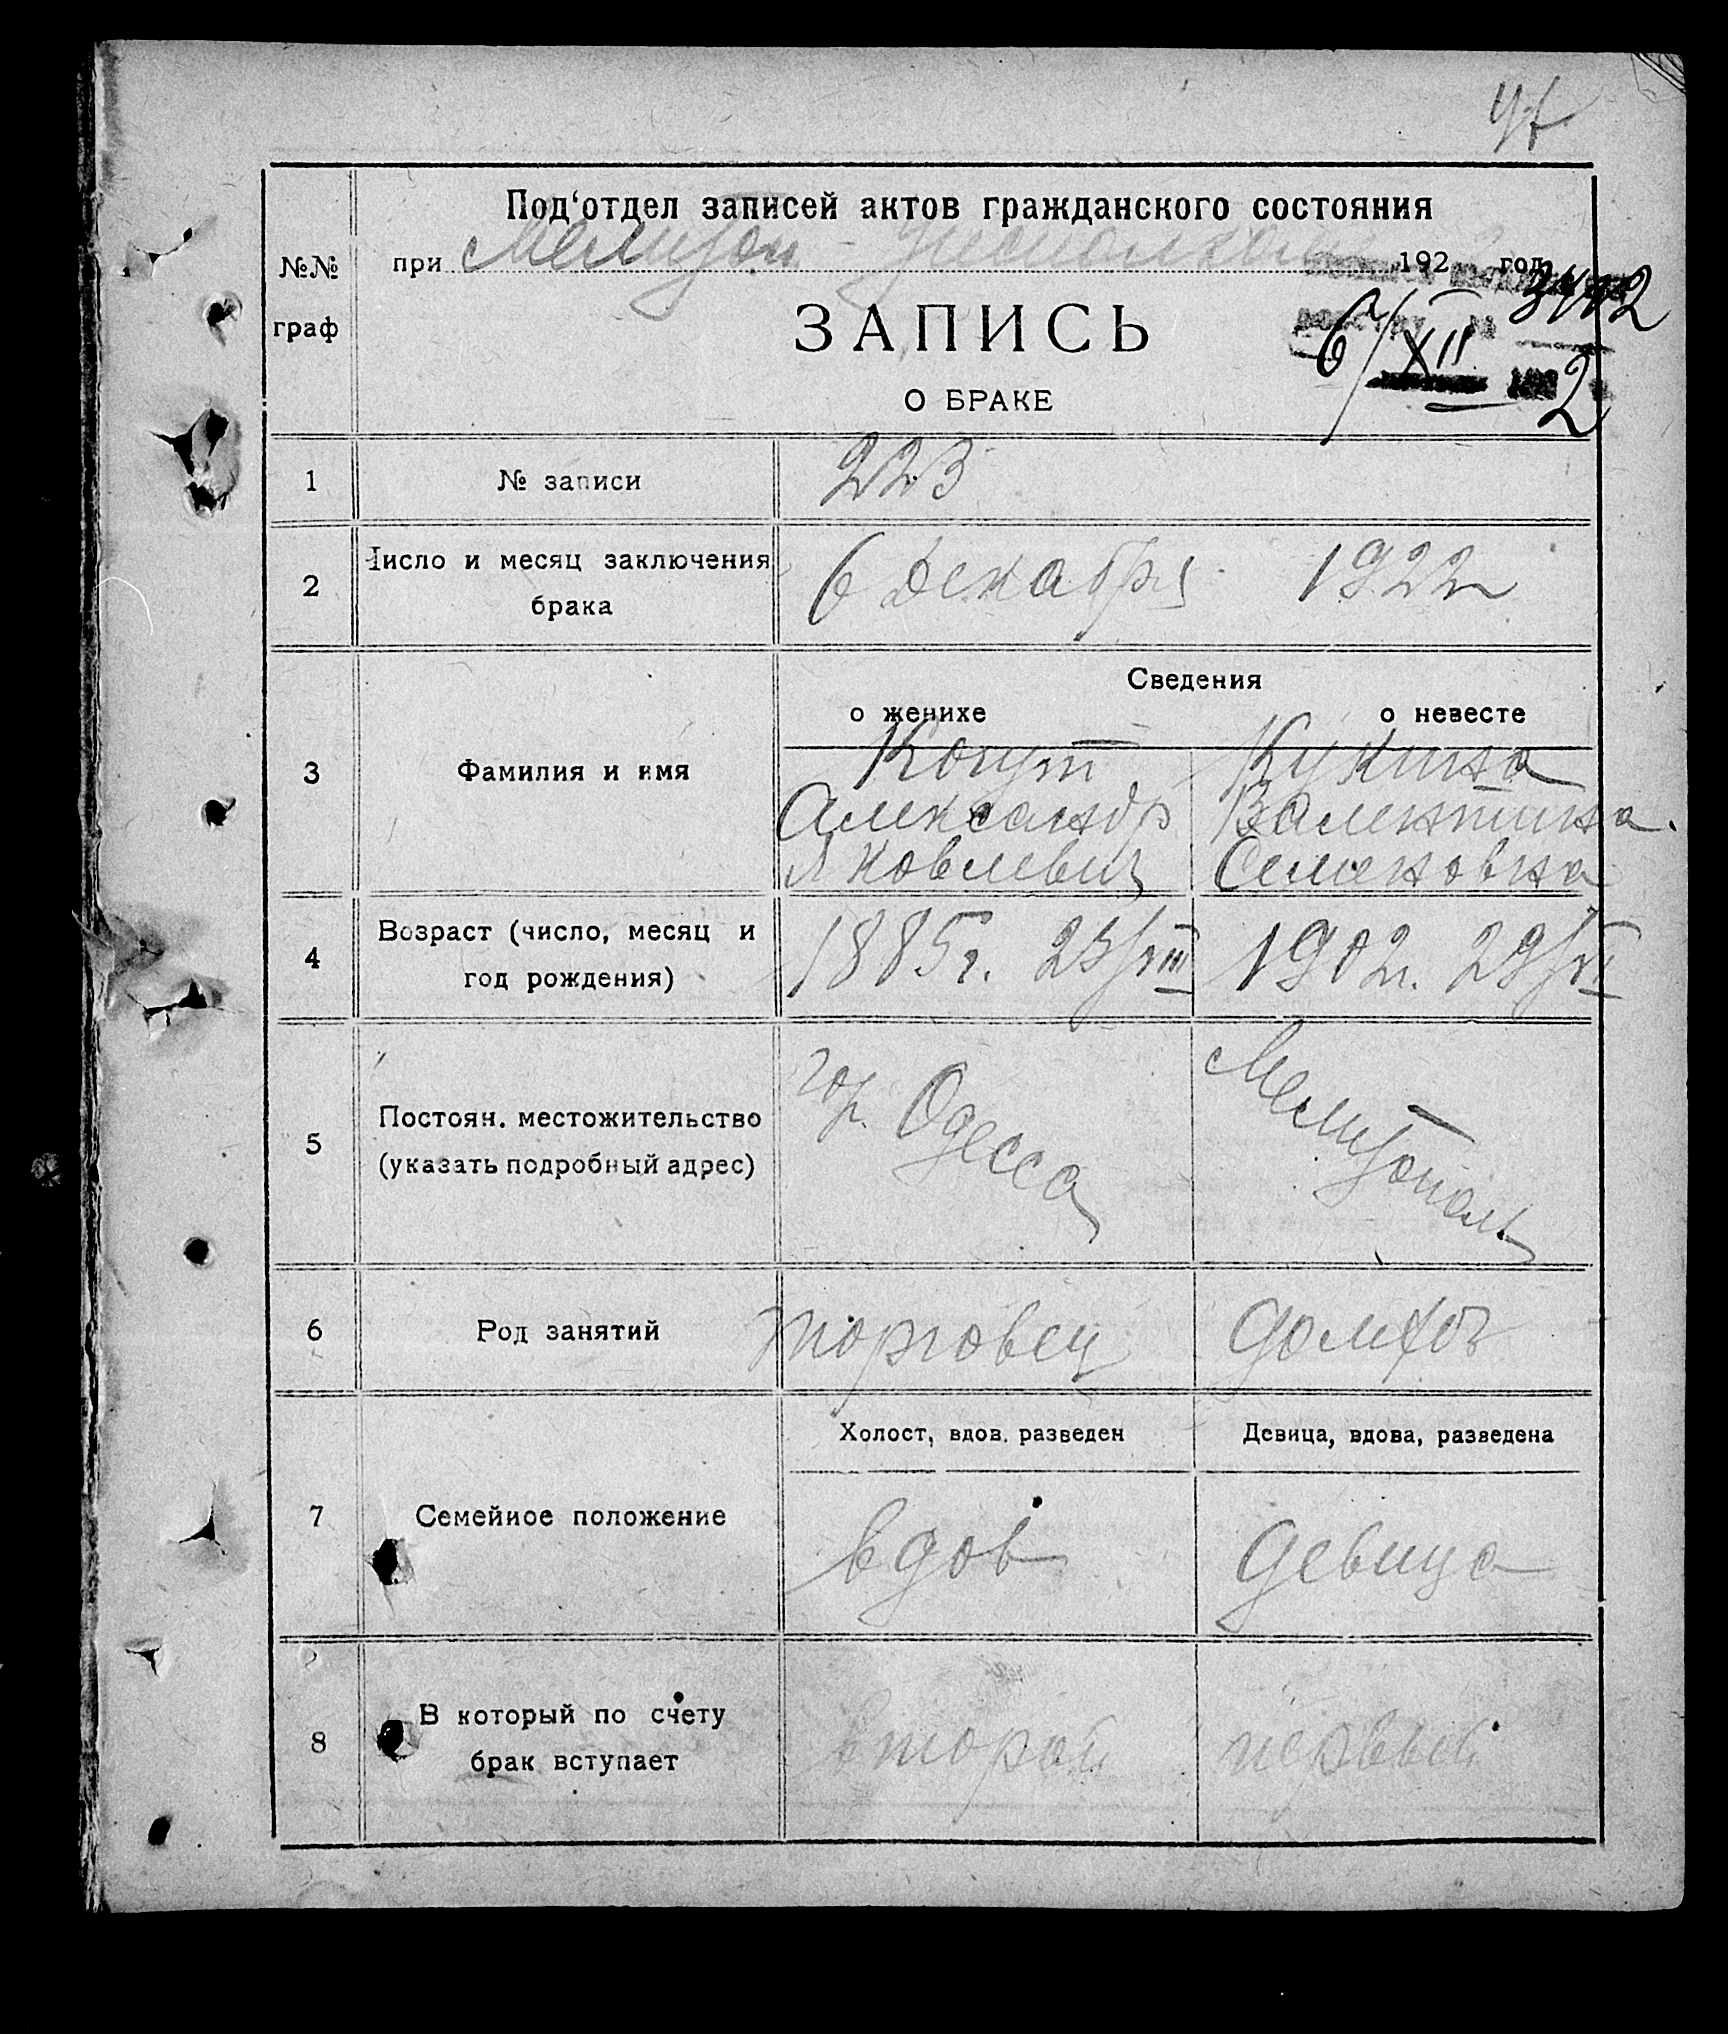 Под‘отдел записей актов гражданского состояния
№№
граф
при Мелитоп 192 год
ЗАПИСЬ
О БРАКЕ
3442
6/XII 2
1
№ записи
223
2
Число и месяц заключения
брака
6 Декабря 1922
Сведения
о женихе
о невесте
3
Фамилия и имя
Когут
Александр
Яковлевич
Кукина
Валентина
Семеновна
4
Возраст (число, месяц и
год рождения)
1885г. 23/VIII
1902г. 29/VI
5
Постоян. местожительство
(указать подробный адрес)
гор. Одесса
Мелитополь
6
Род занятий
торговец
домхоз
7
Семейное положение
Холост, вдов. разведен
Девица, вдова, разведена
вдов
девица
8
В который по счету
брак вступает
второй
первый